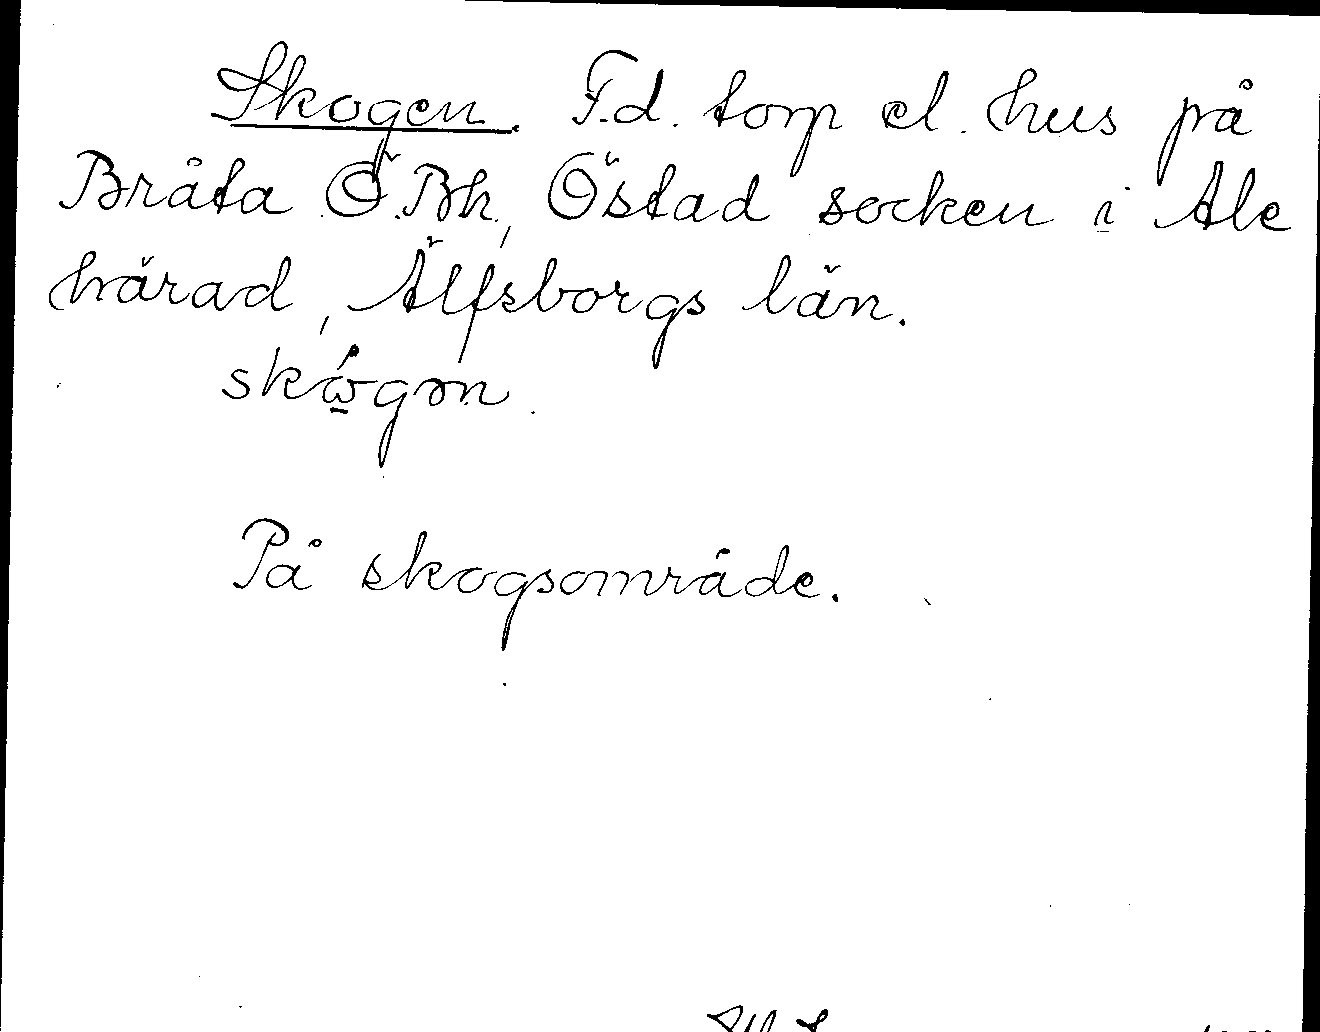 Skogen. F.d. torp el. hus på
Bråta Ö.Bh, Östad socken i Ale
härad, Älfsborgs län.
skώ̲gən
På skogsområde.